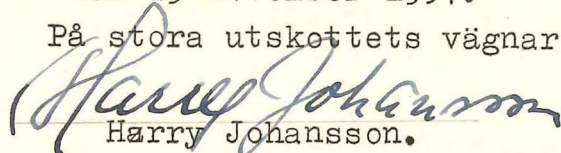 På stora utskottets vägnar
Harry Johansson
Harry Johansson.